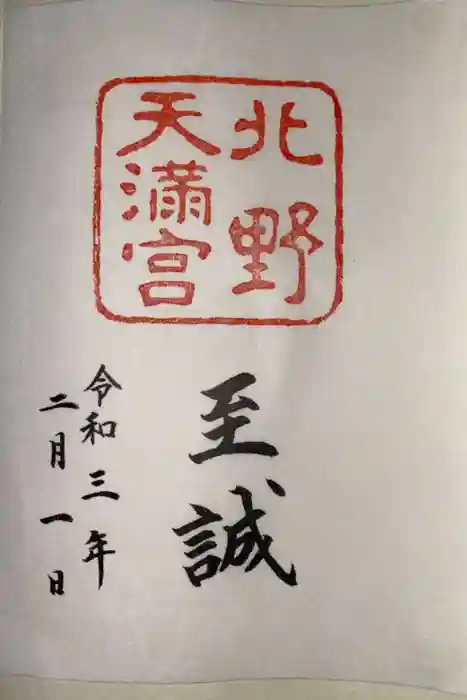 北野
天満宮
至誠
令和三年
二月一日